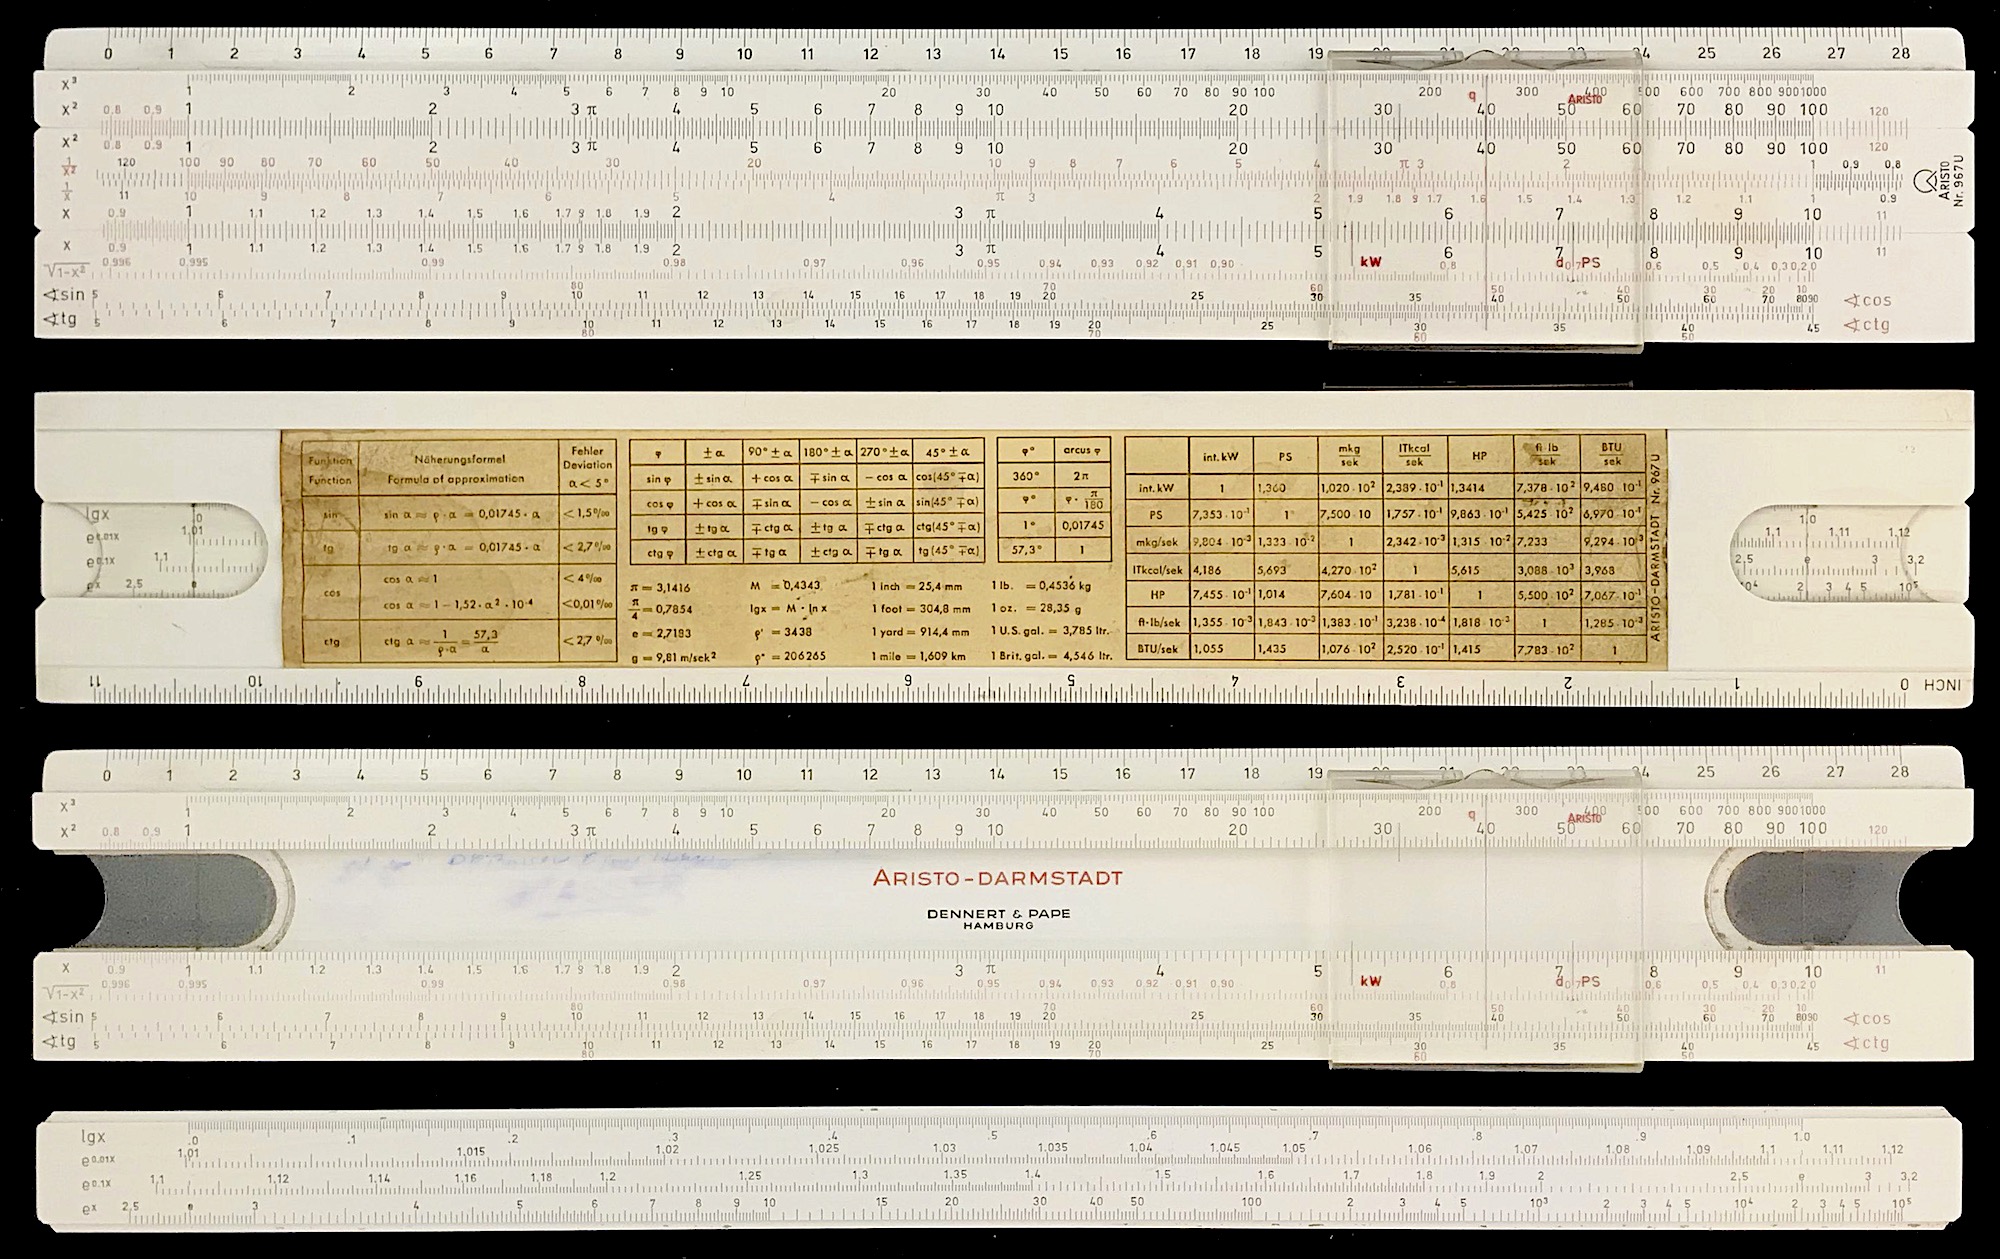 0 1 2 3 4 5 6 7 8 9 10 11 12 13 14 15 16 17 18 19 20 21 22 23 24 25 26 27 28
x³ 1 2 3 4 5 6 7 8 9 10 20 30 40 50 60 70 80 90 100 200 300 400 500 600 700 800 900 1000
q ARISTO
x² 0.8 0.9 1 2 3 π 4 5 6 7 8 9 10 20 30 40 50 60 70 80 90 100 120
x² 0.8 0.9 1 2 3 π 4 5 6 7 8 9 10 20 30 40 50 60 70 80 90 100 120
1/x² 120 100 90 80 70 60 50 40 30 20 10 9 8 7 6 5 4 π 3 2 1 0,9 0,8
1/x 11 10 9 8 7 6 5 4 π 3 2 1.9 1.8 1.7 1.6 1.5 1.4 1.3 1.2 1.1 1 0.9
x 0.9 1 1.1 1.2 1.3 1.4 1.5 1.6 1.7 1.8 1.9 2 3 π 4 5 6 7 8 9 10 11
x 0.9 1 1.1 1.2 1.3 1.4 1.5 1.6 1.7 1.8 1.9 2 3 π 4 5 6 7 8 9 10 11
kW d PS
√1-x² 0.996 0.995 0.99 0.98 0.97 0.96 0.95 0.94 0.93 0.92 0.91 0.90 0.8 0.7 0.6 0.5 0.4 0.3 0.2 0
80 70 60 50 40 30 20 10
∢sin 5 6 7 8 9 10 11 12 13 14 15 16 17 18 19 20 25 30 35 40 50 60 70 80 90 ∢cos
∢tg 5 6 7 8 9 10 11 12 13 14 15 16 17 18 19 20 25 30 35 40 45 ∢ctg
80 70 60 50
ARISTO
Nr. 967U
lgx .0
e0.01x 1.01
e0.1x 1,1
ex 2,5 e
Funktion Function Näherungsformel Formula of approximation Fehler Deviation α < 5°
sin sin α ≈ ρ · α = 0,01745 · α < 1,5 ‰
tg tg α ≈ ρ · α = 0,01745 · α < 2,7 ‰
cos cos α ≈ 1 < 4 ‰
cos α ≈ 1 − 1,52 · α² · 10⁻⁴ < 0,01 ‰
ctg ctg α ≈ 1/ρ·α = 57,3/α < 2,7 ‰
φ ± α 90° ± α 180° ± α 270° ± α 45° ± α
sin φ ± sin α + cos α ∓ sin α − cos α cos(45° ∓ α)
cos φ + cos α ∓ sin α − cos α ± sin α sin(45° ∓ α)
tg φ ± tg α ∓ ctg α ± tg α ∓ ctg α ctg(45° ∓ α)
ctg φ ± ctg α ∓ tg α ± ctg α ∓ tg α tg(45° ∓ α)
φ° arcus φ
360° 2π
φ° φ · π/180
1° 0,01745
57,3° 1
π = 3,1416 M = 0,4343 1 inch = 25,4 mm 1 lb. = 0,4536 kg
π/4 = 0,7854 lgx = M · ln x 1 foot = 304,8 mm 1 oz. = 28,35 g
e = 2,7183 ρ' = 3438 1 yard = 914,4 mm 1 U.S. gal. = 3,785 ltr.
g = 9,81 m/sek² ρ" = 206265 1 mile = 1,609 km 1 Brit. gal. = 4,546 ltr.
int. kW PS mkg/sek ITkcal/sek HP ft·lb/sek BTU/sek
int. kW 1 1,360 1,020 · 10² 2,389 · 10⁻¹ 1,3414 7,378 · 10² 9,480 · 10⁻¹
PS 7,353 · 10⁻¹ 1 7,500 · 10 1,757 · 10⁻¹ 9,863 · 10⁻¹ 5,425 · 10² 6,970 · 10⁻¹
mkg/sek 9,804 · 10⁻³ 1,333 · 10⁻² 1 2,342 · 10⁻³ 1,315 · 10⁻² 7,233 9,294 · 10⁻³
ITkcal/sek 4,186 5,693 4,270 · 10² 1 5,615 3,088 · 10³ 3,968
HP 7,455 · 10⁻¹ 1,014 7,604 · 10 1,781 · 10⁻¹ 1 5,500 · 10² 7,067 · 10⁻¹
ft·lb/sek 1,355 · 10⁻³ 1,843 · 10⁻³ 1,383 · 10⁻¹ 3,238 · 10⁻⁴ 1,818 · 10⁻³ 1 1,285 · 10⁻³
BTU/sek 1,055 1,435 1,076 · 10² 2,520 · 10⁻¹ 1,415 7,783 · 10² 1
ARISTO-DARMSTADT Nr. 967U
1.0
1,1 1.11 1,12
2,5 e 3 3,2
10⁴ 2 3 4 5 10⁵
11 10 9 8 7 6 5 4 3 2 1 0 INCH
0 1 2 3 4 5 6 7 8 9 10 11 12 13 14 15 16 17 18 19 20 21 22 23 24 25 26 27 28
x³ 1 2 3 4 5 6 7 8 9 10 20 30 40 50 60 70 80 90 100 200 300 400 500 600 700 800 900 1000
q ARISTO
x² 0.8 0.9 1 2 3 π 4 5 6 7 8 9 10 20 30 40 50 60 70 80 90 100 120
ARISTO-DARMSTADT
DENNERT & PAPE
HAMBURG
x 0.9 1 1.1 1.2 1.3 1.4 1.5 1.6 1.7 1.8 1.9 2 3 π 4 5 6 7 8 9 10 11
kW d PS
√1-x² 0.996 0.995 0.99 0.98 0.97 0.96 0.95 0.94 0.93 0.92 0.91 0.90 0.8 0.7 0.6 0.5 0.4 0.3 0.2 0
80 70 60 50 40 30 20 10
∢sin 5 6 7 8 9 10 11 12 13 14 15 16 17 18 19 20 25 30 35 40 50 60 70 80 90 ∢cos
∢tg 5 6 7 8 9 10 11 12 13 14 15 16 17 18 19 20 25 30 35 40 45 ∢ctg
80 70 60 50
lgx .0 .1 .2 .3 .4 .5 .6 .7 .8 .9 1.0
e0.01x 1.01 1.015 1.02 1.025 1.03 1.035 1.04 1.045 1.05 1.06 1.07 1.08 1.09 1,1 1.11 1,12
e0.1x 1,1 1,12 1,14 1,16 1,18 1,2 1,25 1,3 1,35 1,4 1,5 1,6 1,7 1,8 1,9 2 2,5 e 3 3,2
ex 2,5 e 3 4 5 6 7 8 9 10 15 20 30 40 50 100 2 3 4 5 10³ 2 3 4 5 10⁴ 2 3 4 5 10⁵